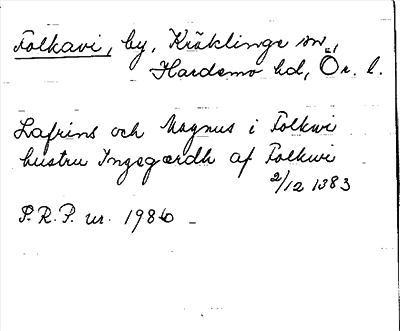 Folkavi, by, Kräklinge sn,
Hardemo hd, Ör. l.
Lafrins och Magnus i Folkwi
hustru Ingegærdh af Folkwi
2/12 1383
P.R.P. nr. 1986